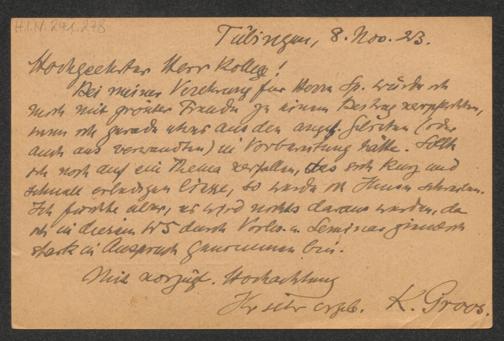 H.I.N. 241.278
Tübingen, 8. Nov. 23.
Hochgeehrter Herr Kollege!
Bei meiner Verehrung für Herrn Sp. würde ich
mich mit größter Freude zu einem Beitrag verpflichten,
wenn ich gerade etwas aus den angef. Gebieten (oder
auch aus verwandten) in Vorbereitung hätte. Sollte
ich noch auf ein Thema verfallen, das sich kurz und
schnell erledigen liesse, so werde ich Ihnen schreiben.
Ich fürchte aber, es wird nichts daraus werden, da
ich in diesem WS durch Vorles. u. Seminar ziemlich
stark in Anspruch genommen bin.
Mit vorzügl. Hochachtung
Ihr sehr ergeb. K. Groos.